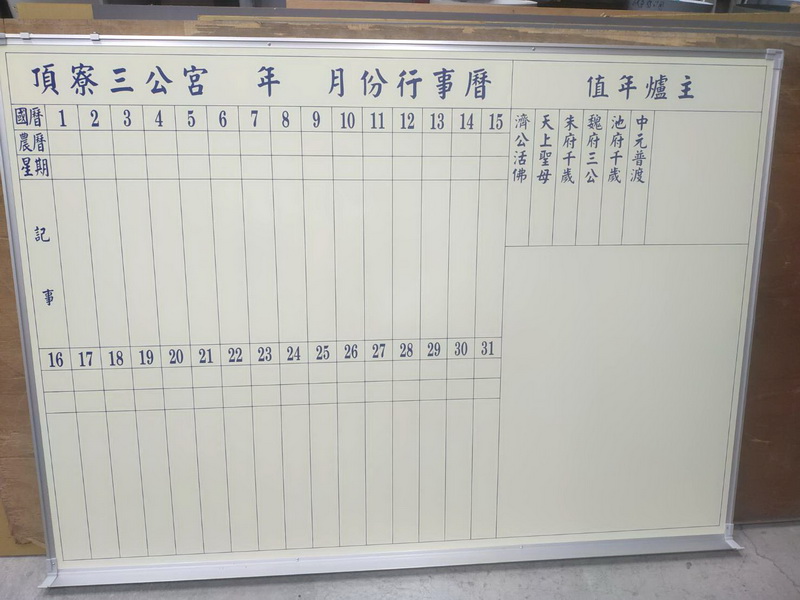 頂寮三公宮 年 月份行事曆
國曆 1 2 3 4 5 6 7 8 9 10 11 12 13 14 15
農曆
星期
記事
16 17 18 19 20 21 22 23 24 25 26 27 28 29 30 31
值年爐主
濟公活佛
天上聖母
朱府千歲
魏府三公
池府千歲
中元普渡